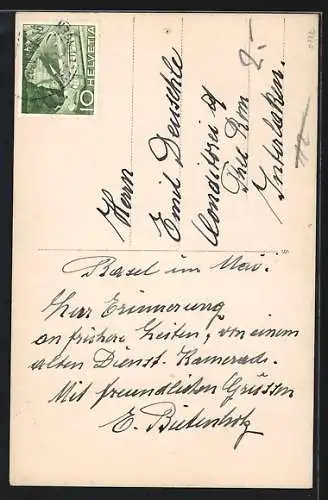 HELVETIA
10
Herrn
Emil Deuschle
Conditorei z
Tea Room
Interlaken.
2.-
Basel im Mai.
Zur Erinnerung
an frühere Zeiten, von einem
alten Dienst-Kamerad.
Mit freundlichen Grüssen
E. Bietenholz